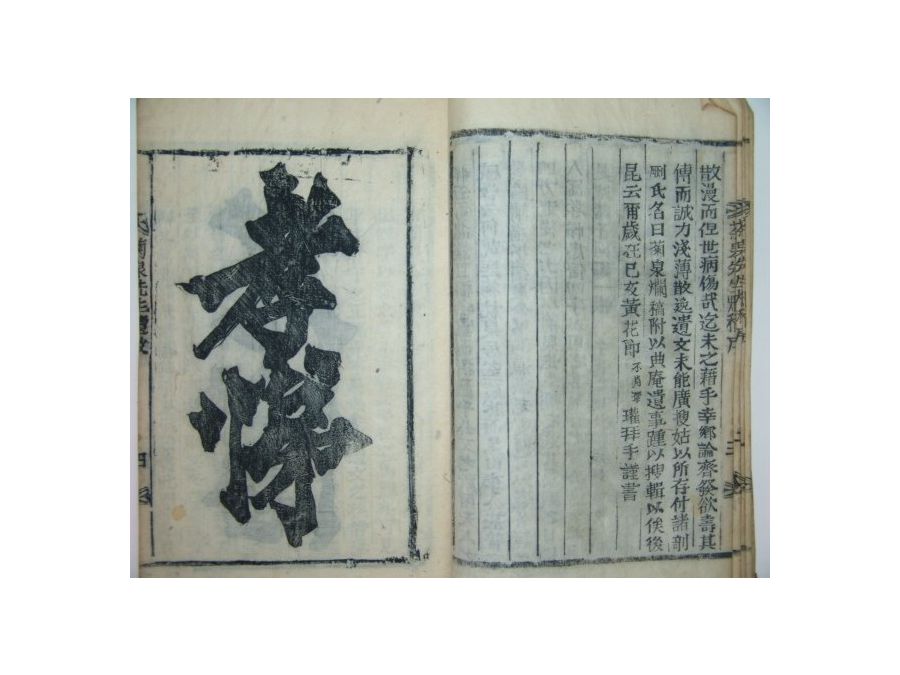 散漫而俚世病傷哉迄未之藉手幸鄕論齊發欲壽其
傳而誠力淺薄散逸遺文未能廣搜姑以所存付諸剞
劂氏名曰菊泉爛稿附以典庵遺事踵以搜輯以俟後
昆云爾歲在己亥黃花節不肖 瓘拜手謹書
孝悌
菊泉先生遺